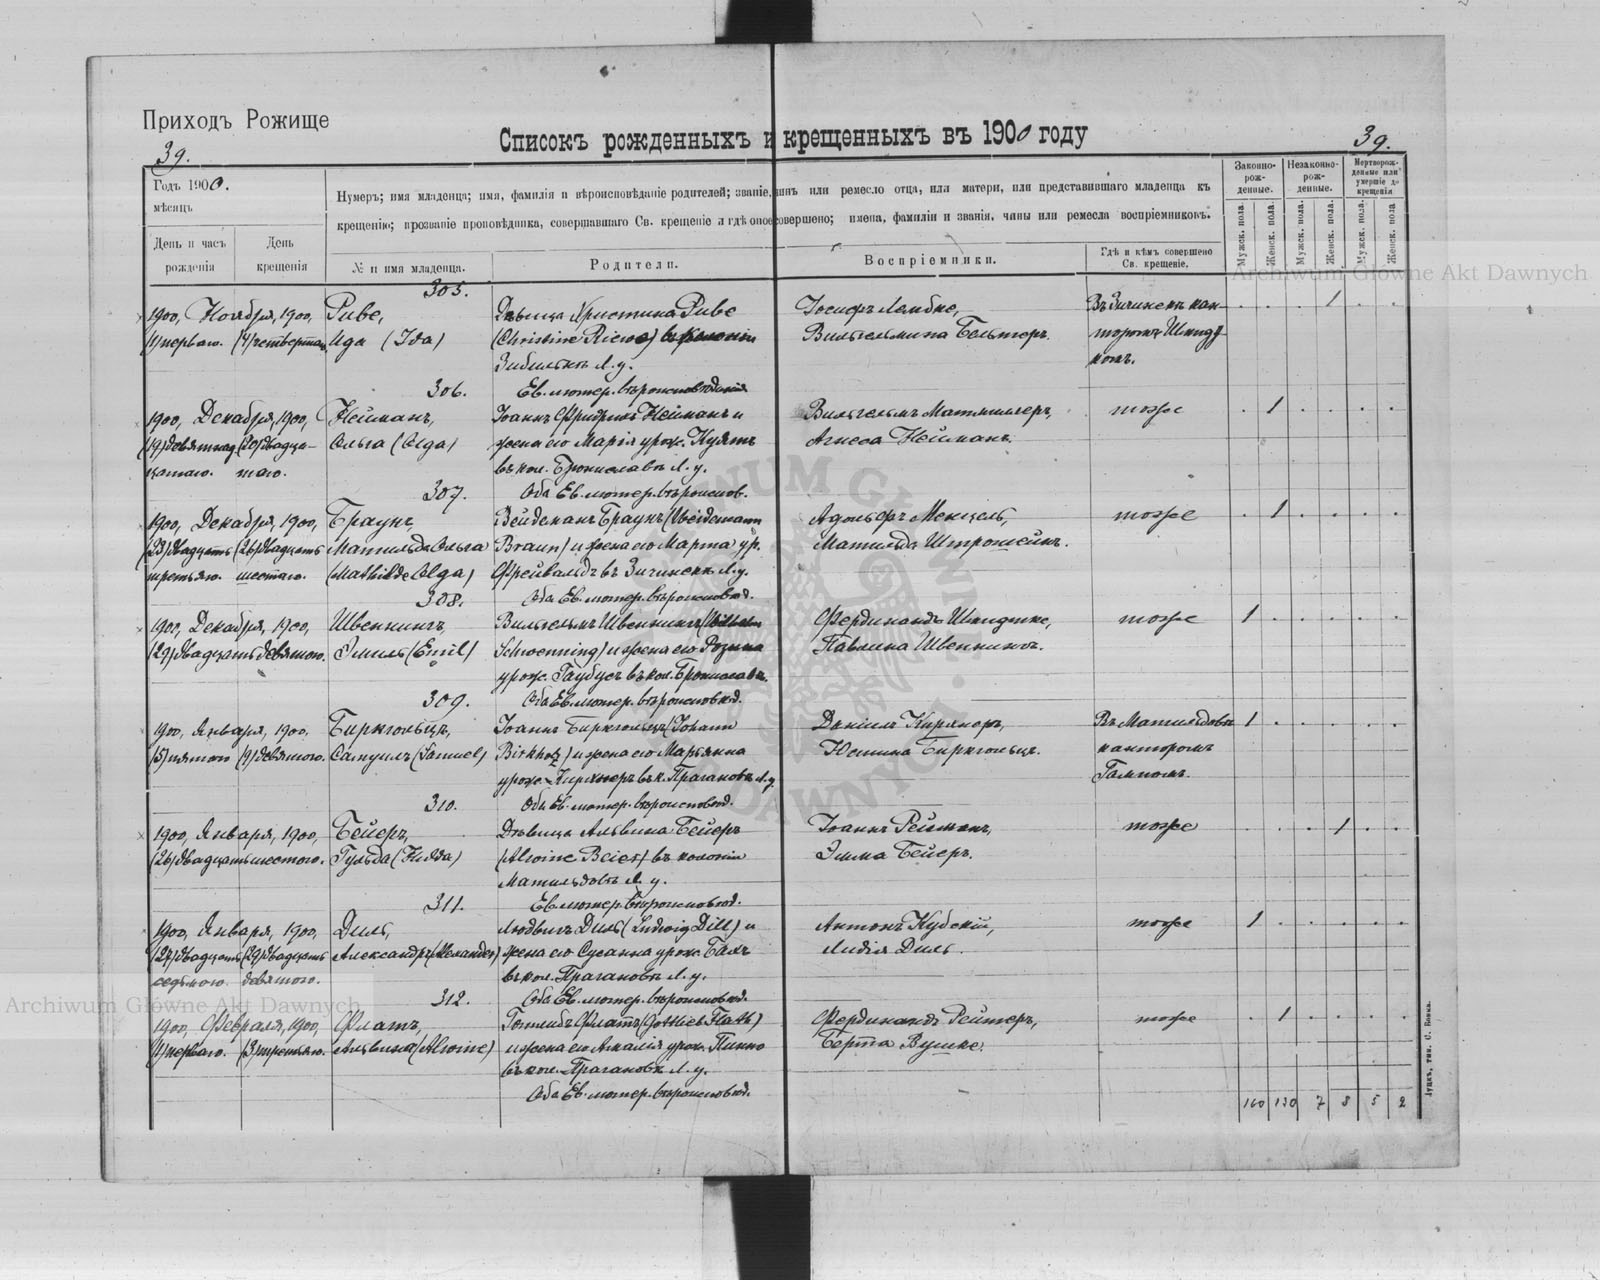 Приходъ Рожище
Списокъ рожденныхъ и крещенныхъ въ 1900 году
39.
39.
Годъ 1900.
мѣсяцъ
День и часъ рожденія
День крещенія
Нумеръ; имя младенца; имя, фамилія и вѣроисповѣданіе родителей; званіе, чинъ или ремесло отца, или матери, или представившаго младенца къ
крещенію; прозваніе проповѣдника, совершавшаго Св. крещеніе и гдѣ оное совершено; имена, фамиліи и званія, чины или ремесла воспріемниковъ.
№ и имя младенца.
Родители.
Воспріемники.
Гдѣ и кѣмъ совершено Св. крещеніе.
Законно-рож-денные.
Незаконно-рож-денные.
Мертворож-денные или умершіе до крещенія
Мужск. пола.
Женск. пола.
Мужск. пола.
Женск. пола.
Мужск. пола.
Женск. пола
Archiwum Główne Akt Dawnych
305.
1900, Ноября, 1900, Риве, Дѣвица Христина Риве Іосифъ Лембке, Въ Зичинекъ кан- 1
(1) перваго. (4) четвертаго Ида (Ida) (Christine Riewe) въ колоніи Вильгельмина Бельтеръ. торомъ Шмидт-
л. у. комъ.
306. Ев. лютер. вѣроисповѣданія
1900, Декабря, 1900, Нейманъ, Іоаннъ Фридрихъ Нейманъ и Вильгельмъ Матмиллеръ, тоже 1
(19) девятнад (20) двадца- Ольга (Olga) жена его Марія урож. Куятъ Агнеса Нейманъ.
цатаго. таго. въ кол. Брониславъ Л. у.
307. Оба Ев. лютер. вѣроисповѣд.
1900, Декабря, 1900, Браунъ, Вейдеманъ Браунъ (Weidemann Адольфъ Менцель, тоже 1
(23) двадцать (26) двадцать Матильда Ольга Braun) и жена его Марта ур. Матильда Штрошейнъ.
третьяго. шестаго. (Mathilde Olga) Фрейвальдъ въ Зичинекъ Л. у.
308. Оба Ев. лютер. вѣроисповѣд.
1900, Декабря, 1900, Швеннингъ, Вильгельмъ Швеннингъ (Wilhelm Фердинандъ Шмидтке, тоже 1
(29) двадцать девятого. Эмиль (Emil) Schwenning) и жена его Розина Павлина Швеннингъ.
урож. Таубусъ въ кол. Брониславъ.
309. Оба Ев. лютер. вѣроисповѣд.
1900, Января, 1900, Биркгольцъ, Іоаннъ Биркгольцъ (Johann Даніилъ Киржнеръ, Въ Матильдовъ 1
(5) пятого (9) девятого. Самуилъ (Samuel) Birkholz) и жена его Марьянна Юстина Биркгольцъ. канторомъ
урож. Киржнеръ въ к. Прагановъ Л. у. Гампомъ.
310. Оба Ев. лютер. вѣроисповѣд.
1900, Января, 1900, Бейеръ, Дѣвица Альвина Бейеръ Іоаннъ Рейманъ, тоже 1
(26) двадцать шестого. Гульда (Hulda) (Alwine Beier) въ колоніи Эмма Бейеръ.
Матильдовъ Л. у.
311. Ев. лютер. вѣроисповѣд.
1900, Января, 1900, Диль, Людвигъ Диль (Ludwig Dill) и Антонъ Кубскій, тоже 1
(27) двадцать (29) двадцать Александръ (Alexander) жена его Сусанна урож. Галъ Лидія Диль.
седьмого. девятого. въ кол. Прагановъ Л. у.
Archiwum Główne Akt Dawnych
312. Оба Ев. лютер. вѣроисповѣд.
1900, Февраля, 1900, Флатъ, Готлибъ Флатъ (Gottlieb Flath) Фердинандъ Рейтеръ, тоже 1
(1) перваго. (3) третьяго. Альвина (Alwine) и жена его Амалія урож. Пинно Берта Вушке.
въ кол. Прагановъ Л. у.
Оба Ев. лютер. вѣроисповѣд.
160 130 7 8 5 2